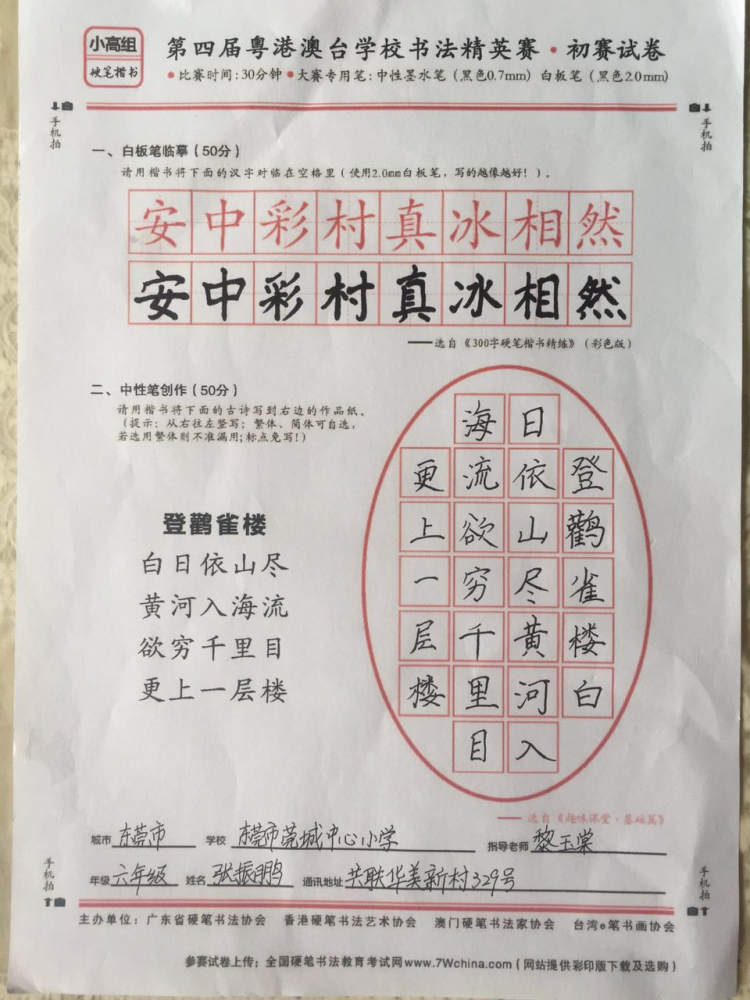 小高组
硬笔楷书
第四届粤港澳台学校书法精英赛·初赛试卷
•比赛时间:30分钟•大赛专用笔:中性墨水笔(黑色0.7mm) 白板笔(黑色2.0mm)
手机拍
手机拍
一、白板笔临摹(50分)
请用楷书将下面的汉字对临在空格里(使用2.0mm白板笔,写的越像越好!)。
安中彩村真冰相然
安中彩村真冰相然
——选自《300字硬笔楷书精练》(彩色版)
二、中性笔创作(50分)
请用楷书将下面的古诗写到右边的作品纸。
(提示:从右往左竖写;繁体、简体可自选,
若选用繁体则不准漏用;标点免写!)
登鹳雀楼
白日依山尽
黄河入海流
欲穷千里目
更上一层楼
登鹳雀楼白
日依山尽黄河入
海流欲穷千里目
更上一层楼
——选自《趣味课堂·基础篇》
城市 东莞市 学校 东莞市莞城中心小学 指导老师 黎玉棠
年级 六年级 姓名 张振鹏 通讯地址 共联华美新村329号
手机拍
手机拍
主办单位:广东省硬笔书法协会 香港硬笔书法艺术协会 澳门硬笔书法家协会 台湾e笔书画协会
参赛试卷上传:全国硬笔书法教育考试网www.7Wchina.com(网站提供彩印版下载及选购)